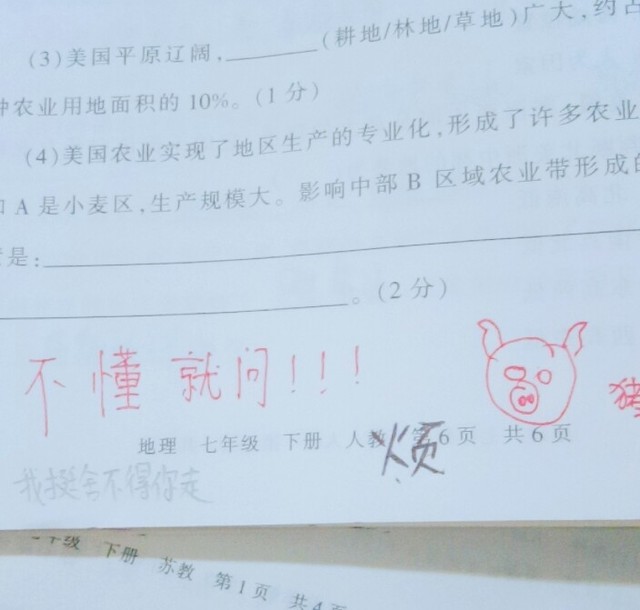 (3)美国平原辽阔，______(耕地/林地/草地)广大，约占
农业用地面积的10%。(1分)
(4)美国农业实现了地区生产的专业化，形成了许多农业
A是小麦区，生产规模大。影响中部B区域农业带形成的
是：
。(2分)
不懂就问！！！
猪
地理 七年级 下册 人教 第6页 共6页
烦
我挺舍不得你走
年级 下册 苏教 第1页 共4页